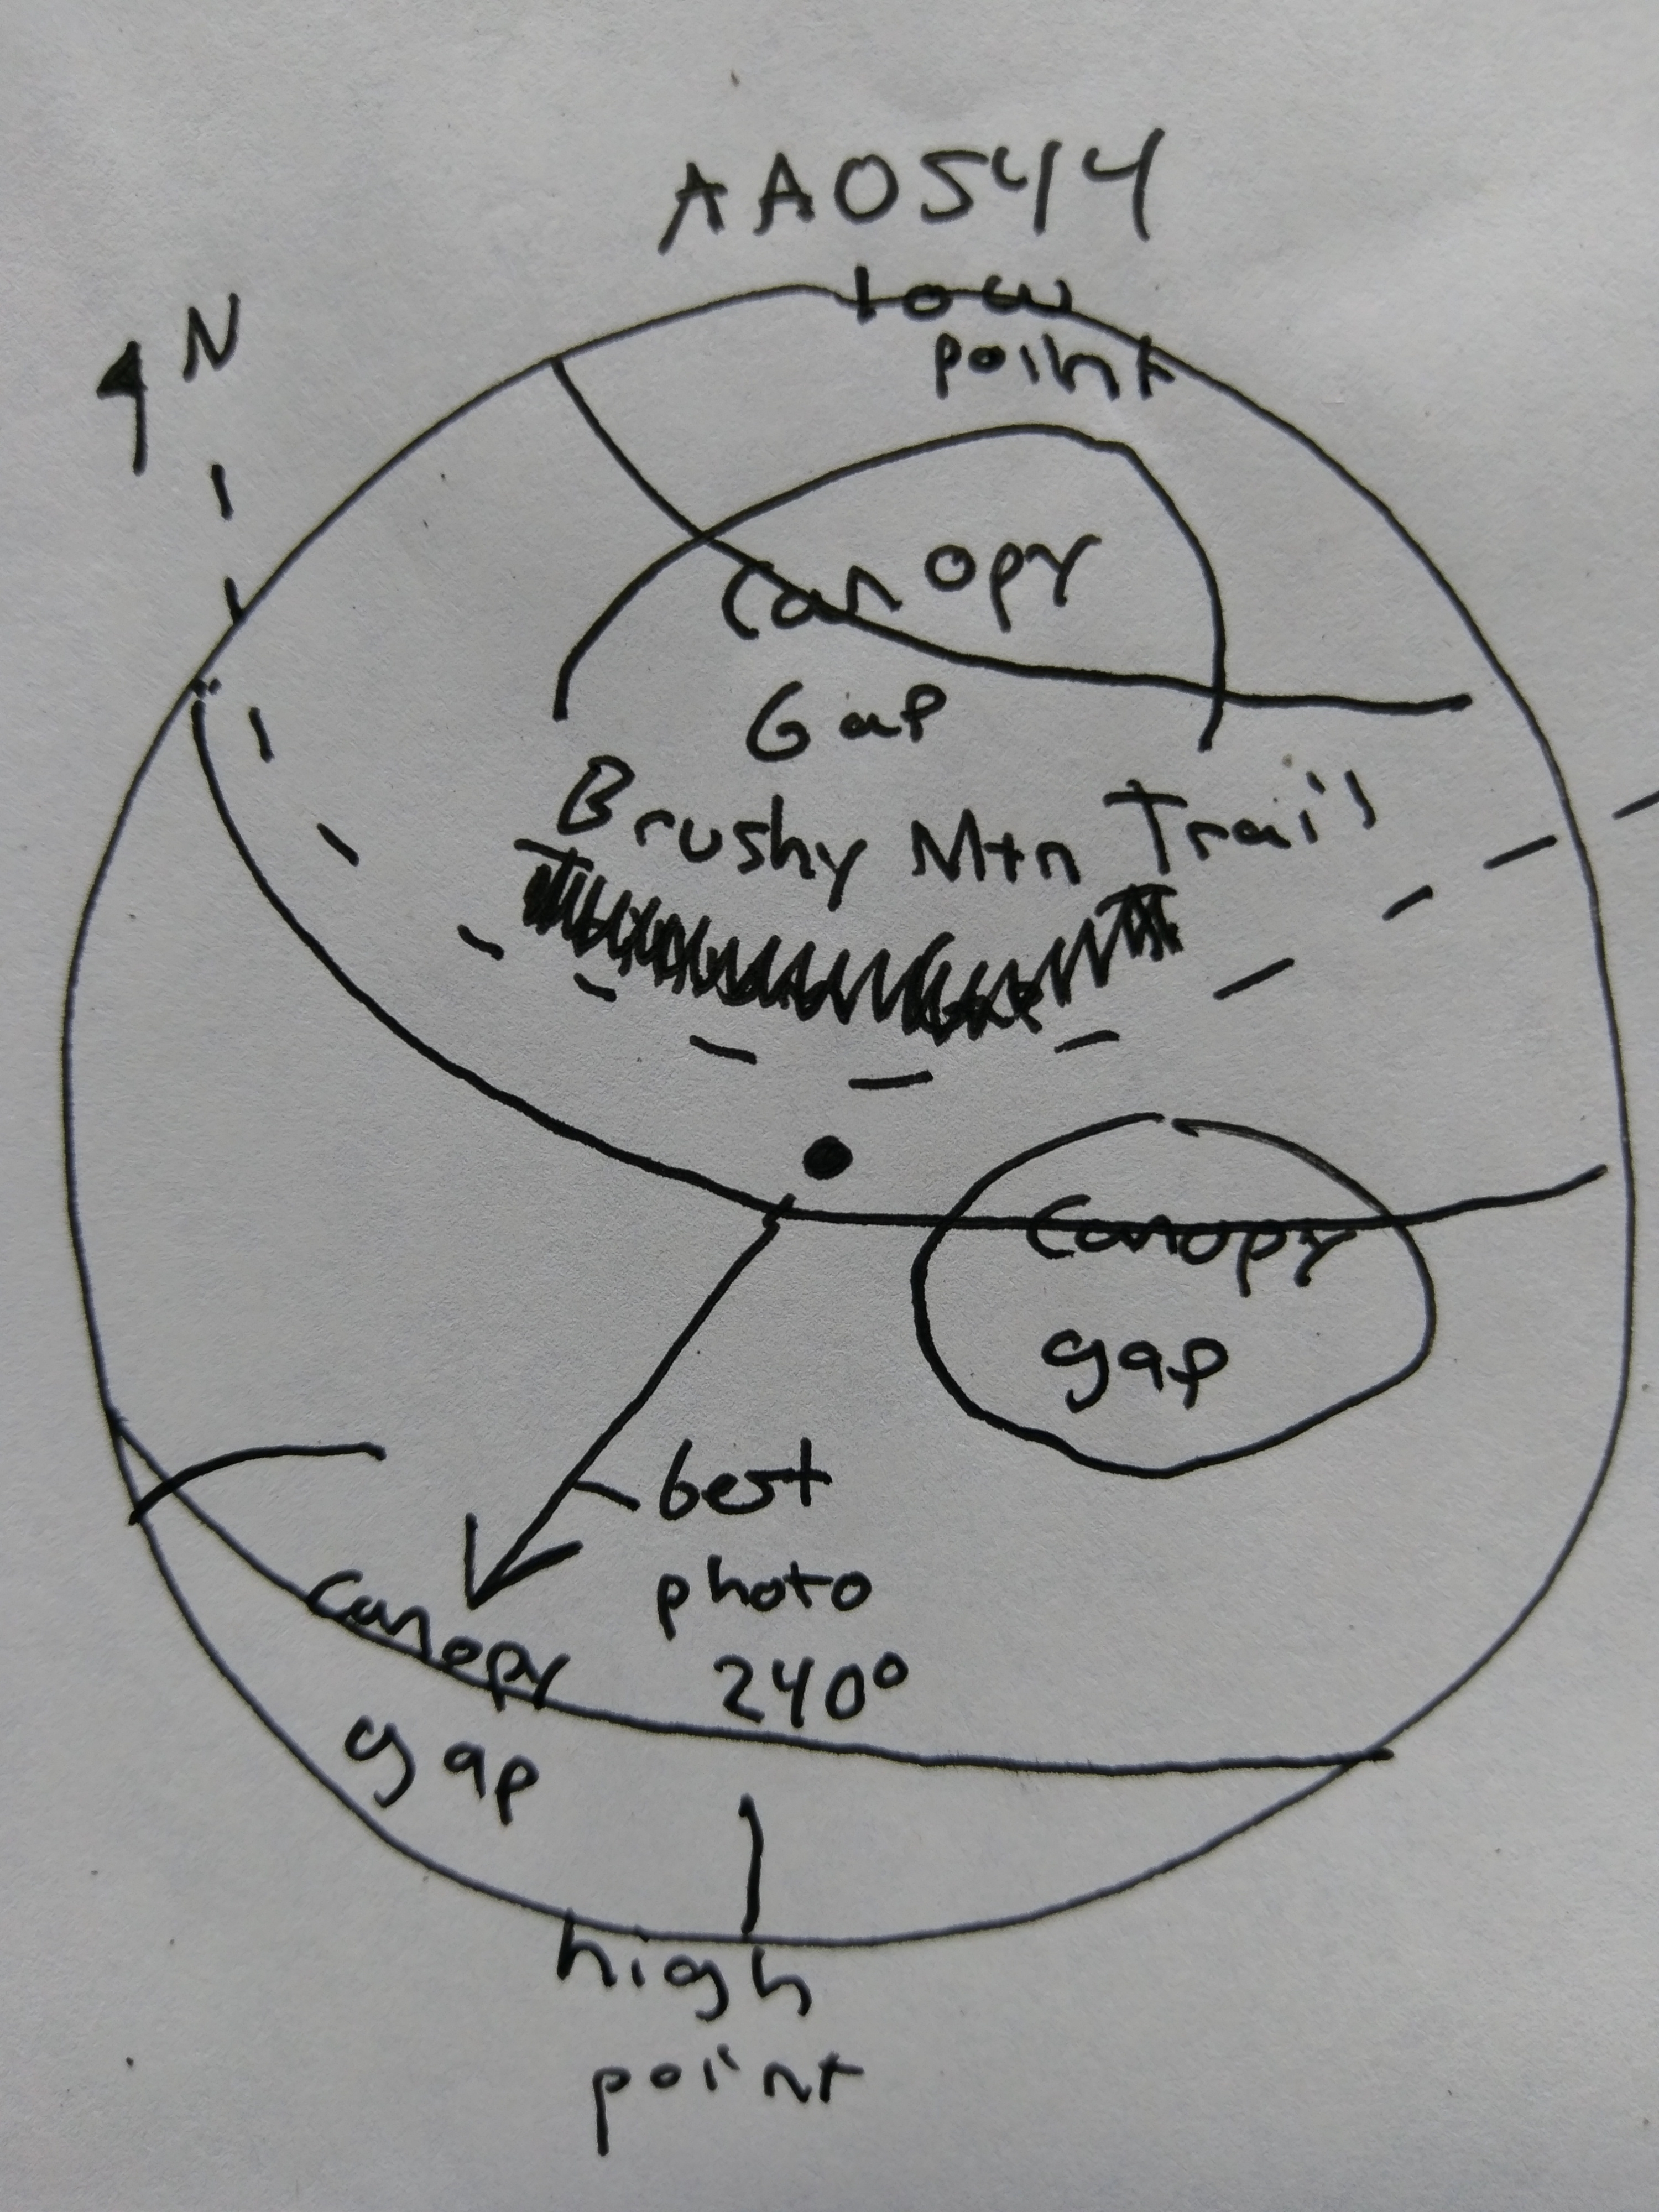 AA0544
N
low
point
canopy
Gap
Brushy Mtn Trail
canopy
gap
best
photo
240°
canopy
gap
high
point